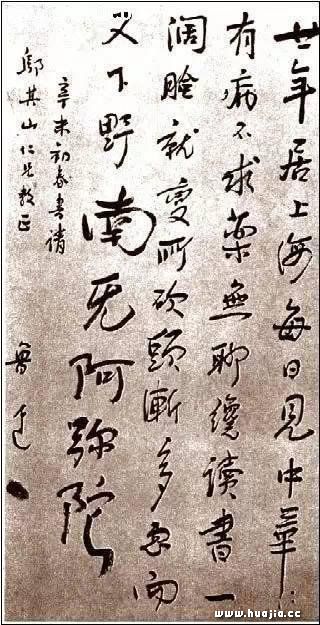 廿年居上海每日見中華
有病不求藥無聊纔讀書一
闊臉就變所砍頭漸多忽而
又下野南无阿弥陀
辛未初春書請
鄔其山仁兄教正
魯迅
www.huajia.cc